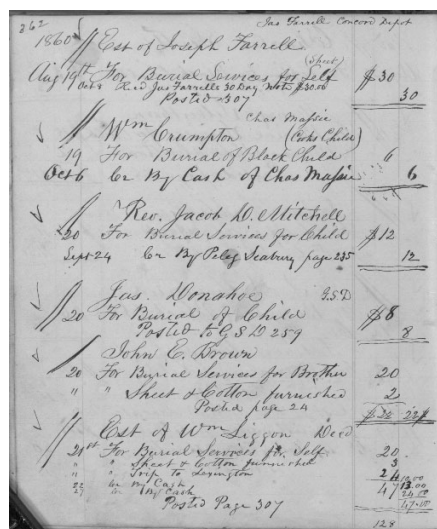 262 Jas Farrell Concord Depot
1860 Est of Joseph Farrell
(Sheet)
Aug 19th For Burial Services for Self $30
Oct 8 Recd Jas Farrells 30 Day Note $30.00 30
Posted 307
Chas Massie
Wm Crumpton (Cooks Child)
19 For Burial of Black Child 6
Oct 6 Cr By Cash of Chas Massie 6
Rev. Jacob D. Mitchell
20 For Burial Services for Child $12
Sept 24 Cr By Peleg Seabury page 235 12
Jas. Donahoe G.S.D
20 For Burial of Child $8
Posted to G S D 259 8
John E. Brown
20 For Burial Services for Brother 20
" " Sheet & Cotton furnished 2
Posted page 24 $22 22
Est of Wm Liggon Decd
21st For Burial Services for Self 20
" " Sheet & Cotton furnished 3
" " Trip to Lexington 24
22 Cr By Cash 47 13.00
27 Cr By Cash
Posted Page 307 47.00
128